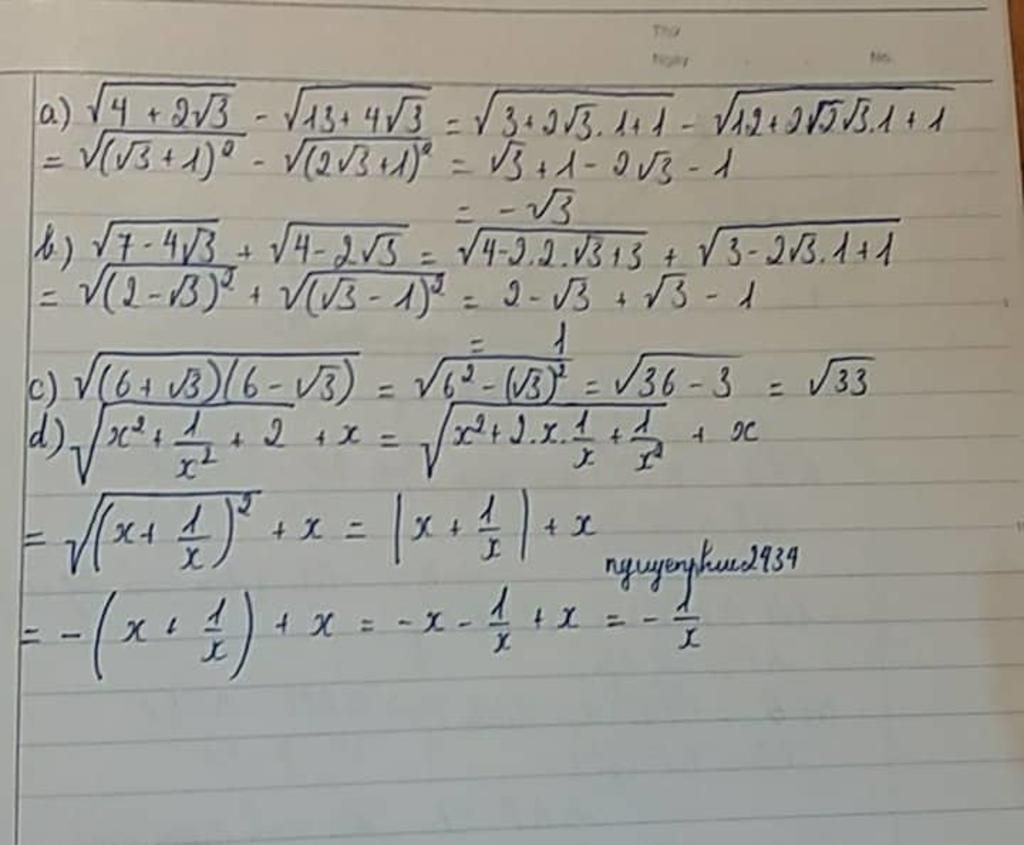 Thứ
Ngày No.
a) √(4 + 2√3) - √(13 + 4√3) = √(3 + 2√3.1 + 1) - √(12 + 2√2√3.1 + 1)
= √((√3 + 1)²) - √((2√3 + 1)²) = √3 + 1 - 2√3 - 1
= -√3
b) √(7 - 4√3) + √(4 - 2√3) = √(4 - 2.2.√3 + 3) + √(3 - 2√3.1 + 1)
= √((2 - √3)²) + √((√3 - 1)²) = 2 - √3 + √3 - 1
= 1
c) √((6 + √3)(6 - √3)) = √(6² - (√3)²) = √(36 - 3) = √33
d) √(x² + 1/x² + 2) + x = √(x² + 2.x.1/x + 1/x²) + x
= √((x + 1/x)²) + x = |x + 1/x| + x
nguyenphuc2434
= -(x + 1/x) + x = -x - 1/x + x = -1/x